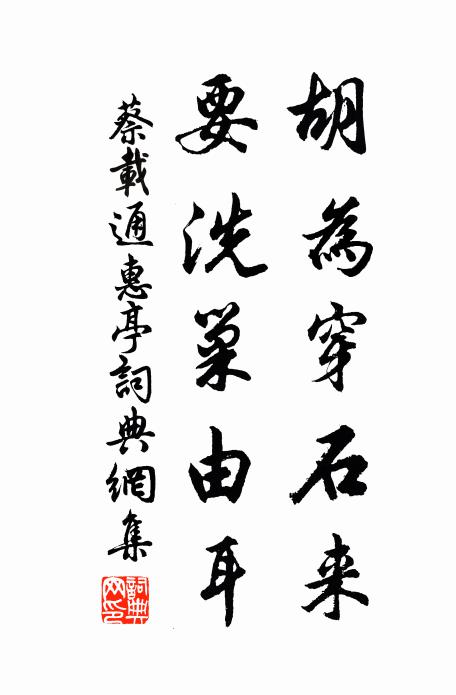 胡為穿石来
要洗巢由耳
蔡載通惠亭詞典網集
詞典網印